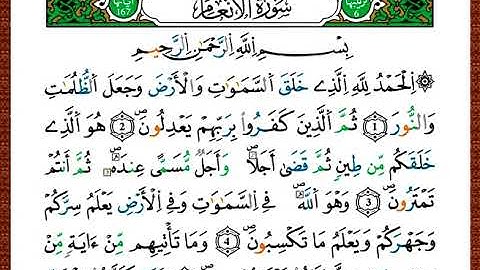 سُورَةُ الأَنْعَام
ترتيبها 6
آياتها 167
بِسْمِ اللَّهِ الرَّحْمَٰنِ الرَّحِيمِ
۞ اِلْحَمْدُ لِلهِ اِلذِے خَلَقَ اَلسَّمَٰوَٰتِ وَالْأَرْضَ وَجَعَلَ اَلظُّلُمَٰتِ
وَالنُّورَ 1 ثُمَّ اَلذِينَ كَفَرُواْ بِرَبِّهِمْ يَعْدِلُونَۖ 2 هُوَ اَلذِے
خَلَقَكُم مِّن طِينٖ ثُمَّ قَضَىٰٓ أَجَلاٗۖ وَأَجَلٞ مُّسَمّيً عِندَهُۥۖ ثُمَّ أَنتُمْ
تَمْتَرُونَۖ 3 وَهُوَ اَللَّهُۖ فِے اِلسَّمَٰوَٰتِ وَفِے اِلْأَرْضِ يَعْلَمُ سِرَّكُمْ
وَجَهْرَكُمْ وَيَعْلَمُ مَا تَكْسِبُونَۖ 4 وَمَا تَأْتِيهِم مِّنْ ءَايَةٖ مِّنْ